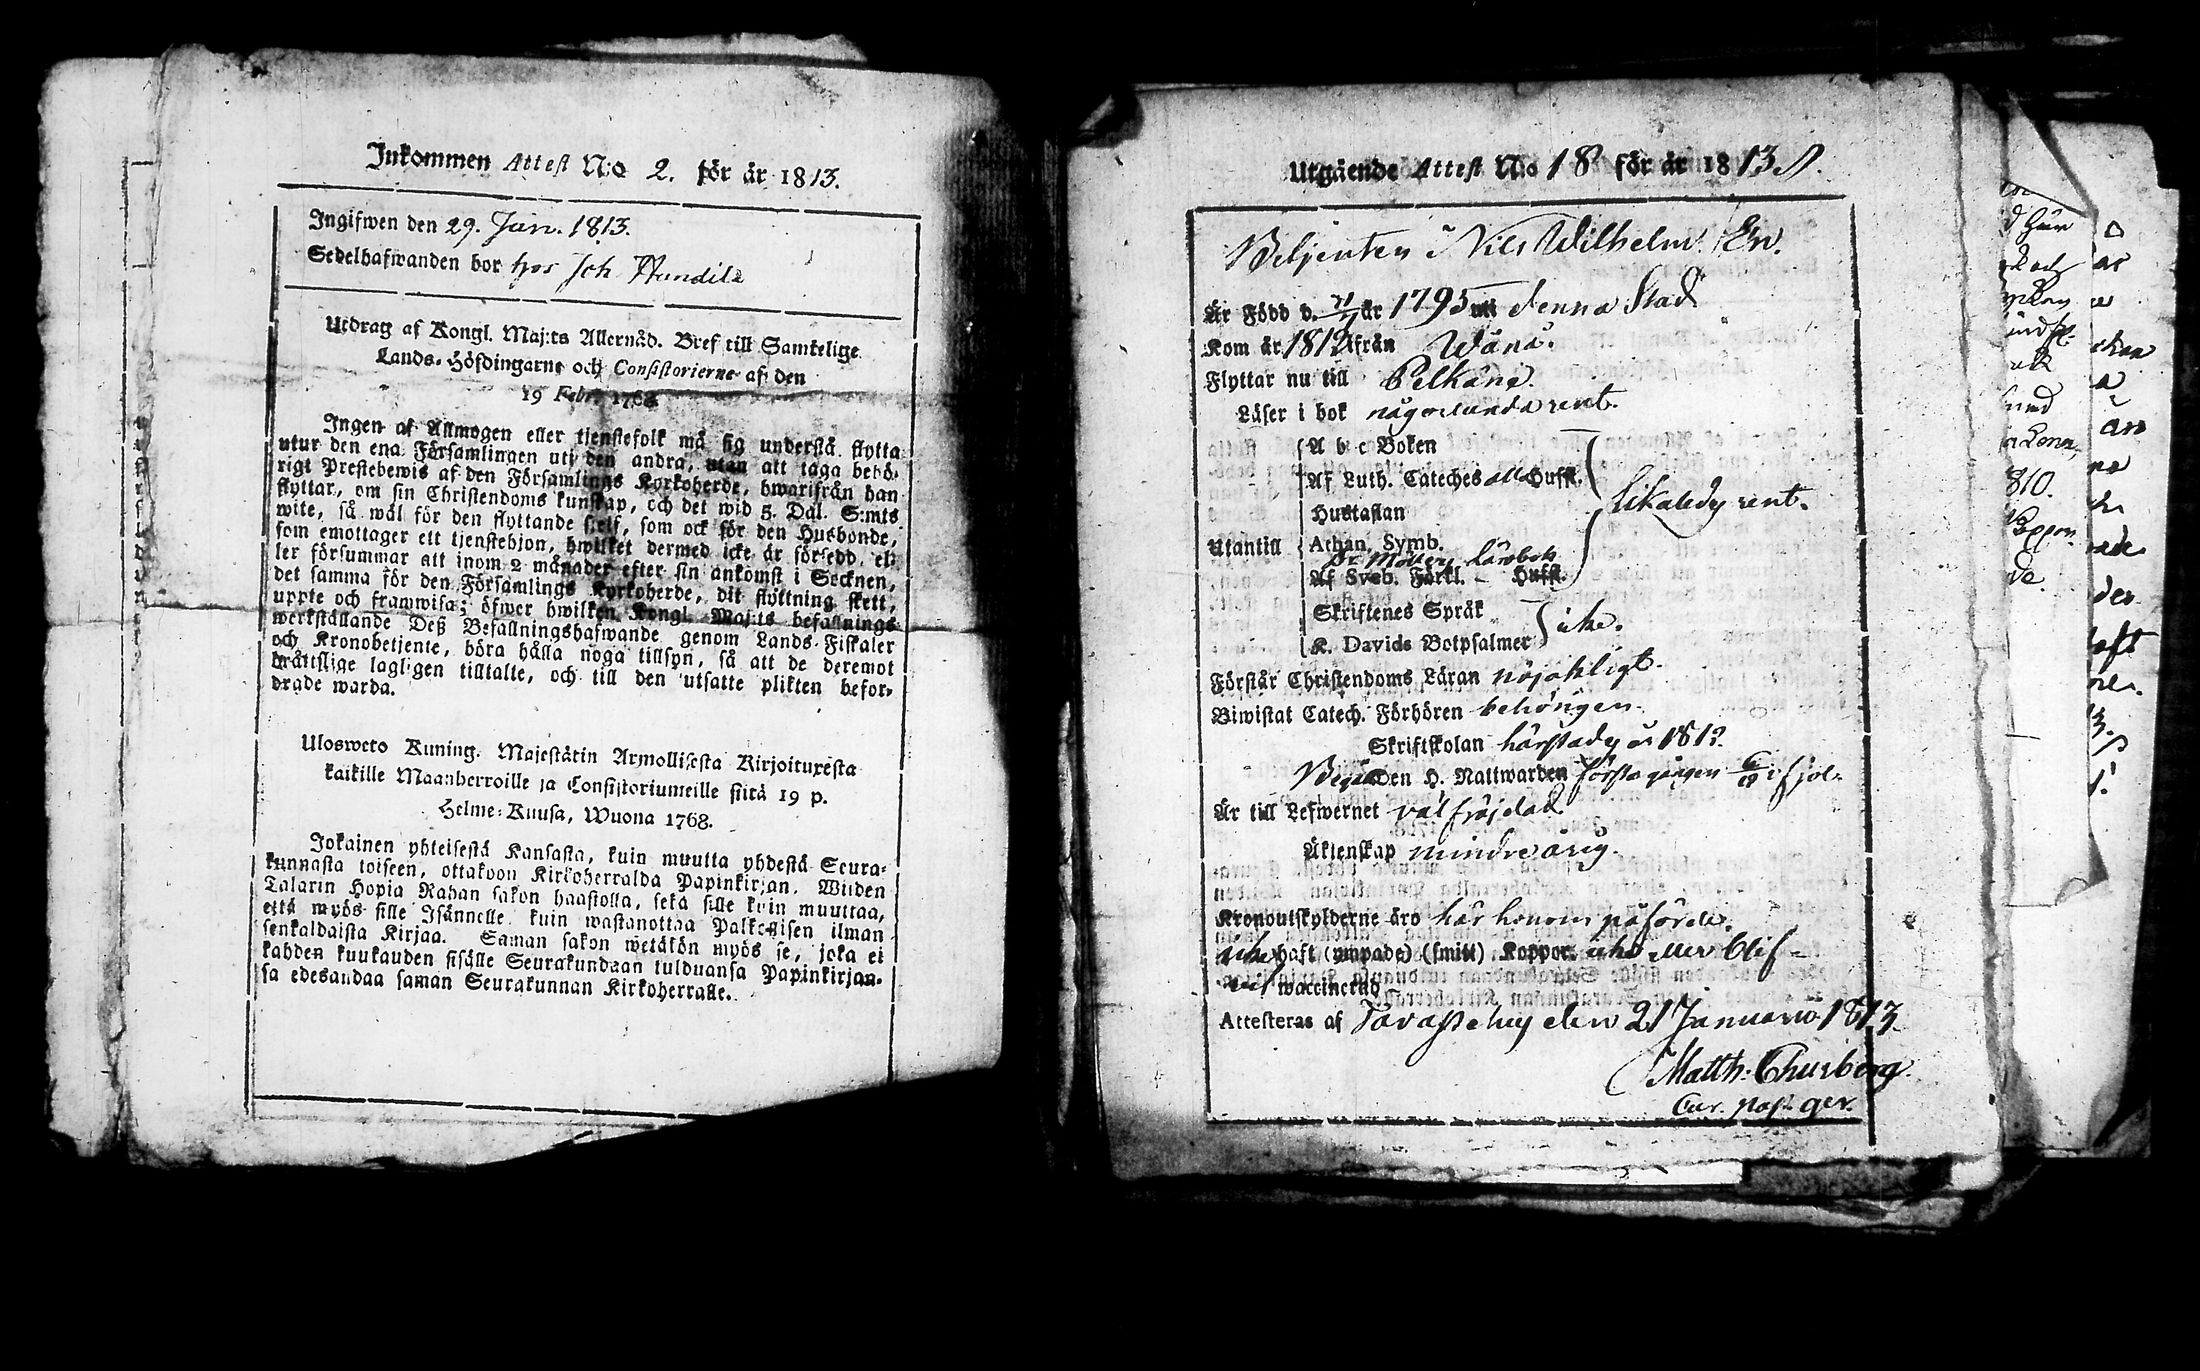 Inkommen Attest N:o 2. för år 1813.
Ingifwen den 29. Jan. 1813.
Sedelhafwanden bor hos Joh
Utdrag af Kongl. Maj:ts Allernåd. Bref till Samtelige
Lands-Höfdingarne och Consistorierne af den
19 Febr. 1768
Ingen af Allmogen eller tjenstefolk må sig understå flytta
utur den ena Församlingen uti den andra, utan att taga behö-
rigt Prestebewis af den Församlings Kyrkoherde, hwarifrån han
flyttar, om sin Christendoms kunskap, och det wid 5. Dal. S:mts
wite, så wäl för den flyttande sielf, som ock för den Husbonde,
som emottager ett tjenstehjon, hwilket dermed icke är försedd, el-
ler försummar att inom 2 månader efter sin ankomst i Socknen,
det samma för den Församlings Kyrkoherde, dit flyttning skett,
uppte och framwisa; öfwer hwilken Kongl. Maj:ts befallnings
werkställande Deß Befallningshafwande genom Lands-Fiskaler
och Kronobetjente, böra hålla noga tillsyn, så att de deremot
bråttslige lagligen tilltalte, och till den utsatte plikten befor-
drade warda.
Ulosweto Kuning. Majestätin Armollisesta Kirjoituxesta
kaikille Maanherroille ja Consistoriumeille siitä 19 p.
Helme-Kuusa, Wuona 1768.
Jokainen yhteisestä Kansasta, kuin muutta yhdestä Seura-
kunnasta toiseen, ottakoon Kirkoherralda Papinkirjan, Wiiden
Talarin Hopia Rahan sakon haastolla, sekä sille kuin muuttaa,
että myös sille Isännelle kuin wastanottaa Palkollisen ilman
senkaldaista Kirjaa. Saman sakon wetäkön myös se, joka ei
kahden kuukauden sisälle Seurakundaan tulduansa Papinkirjan-
sa edesandaa saman Seurakunnan Kirkoherralle.
Utgående Attest N:o 18 för år 1813
Betjenten Nils Wilhelm En.
Är Född d. år 1795 uti denna Stad
Kom år 1812 ifrån Wånå.
Flyttar nu till Pelkäne.
Läser i bok någorlunda rent.
Utantill
A b c Boken
Af Luth. Cateches alla Hufst.
Hustaflan
likaledes rent.
Athan. Symb.
Dr Möllers Lärobok
Af Sveb. Förkl. – Hufst.
Skriftenes Språk
K. Davids Botpsalmer
icke.
Förstår Christendoms Läran nöjaktligt.
Biwistat Catech. Förhören behörigen.
Skriftskolan härstädes år 1812.
Begått den H. Nattwarden första gången i fjol.
Är till Lefwernet välfräjdad
Äktenskap minderårig.
Kronoutskylderne äro här honom påförde.
icke haft (ympade) (smitt) Koppor. icke eller blif-
vit waccinerad
Attesteras af Tavastehus den 21 Januarii 1813
Matth: Churberg
Cur. past. ger.
810.